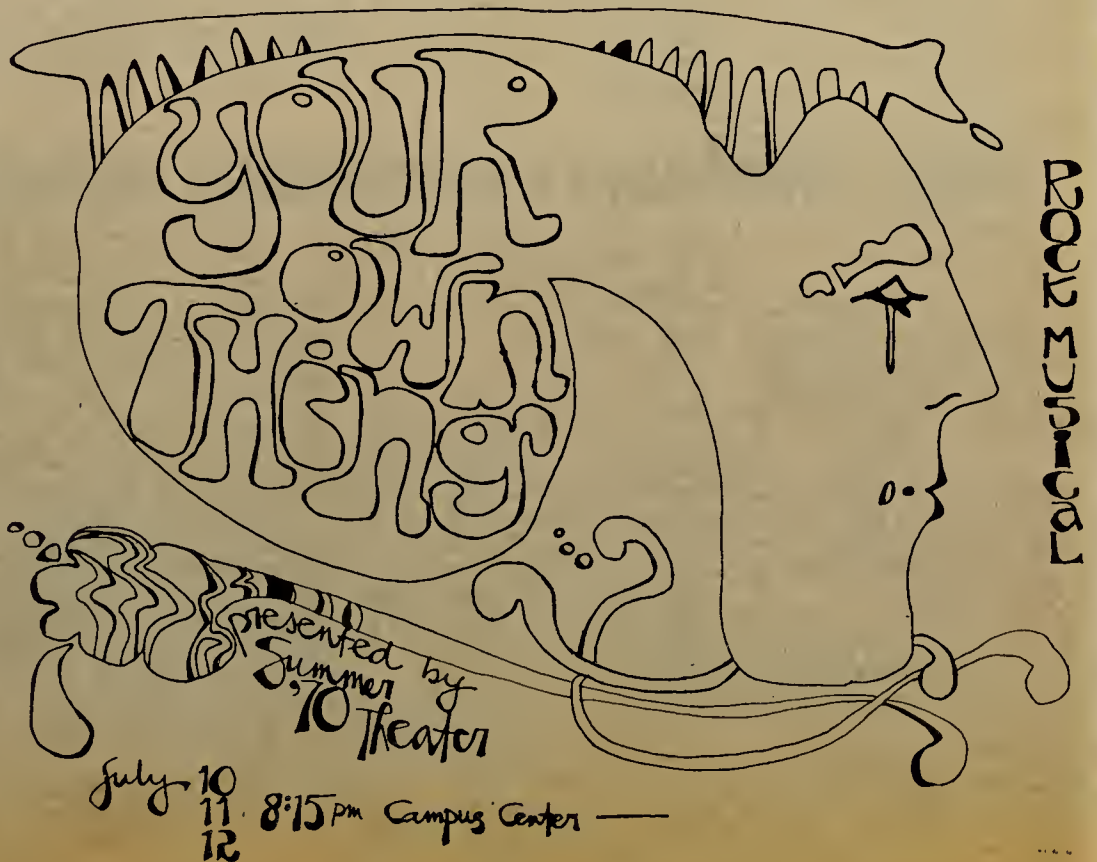 yOUR
OWn
THing
ROCK MUSICaL
presented by
Summer
'70 Theater
July 10
11 8:15 pm Campus Center
12